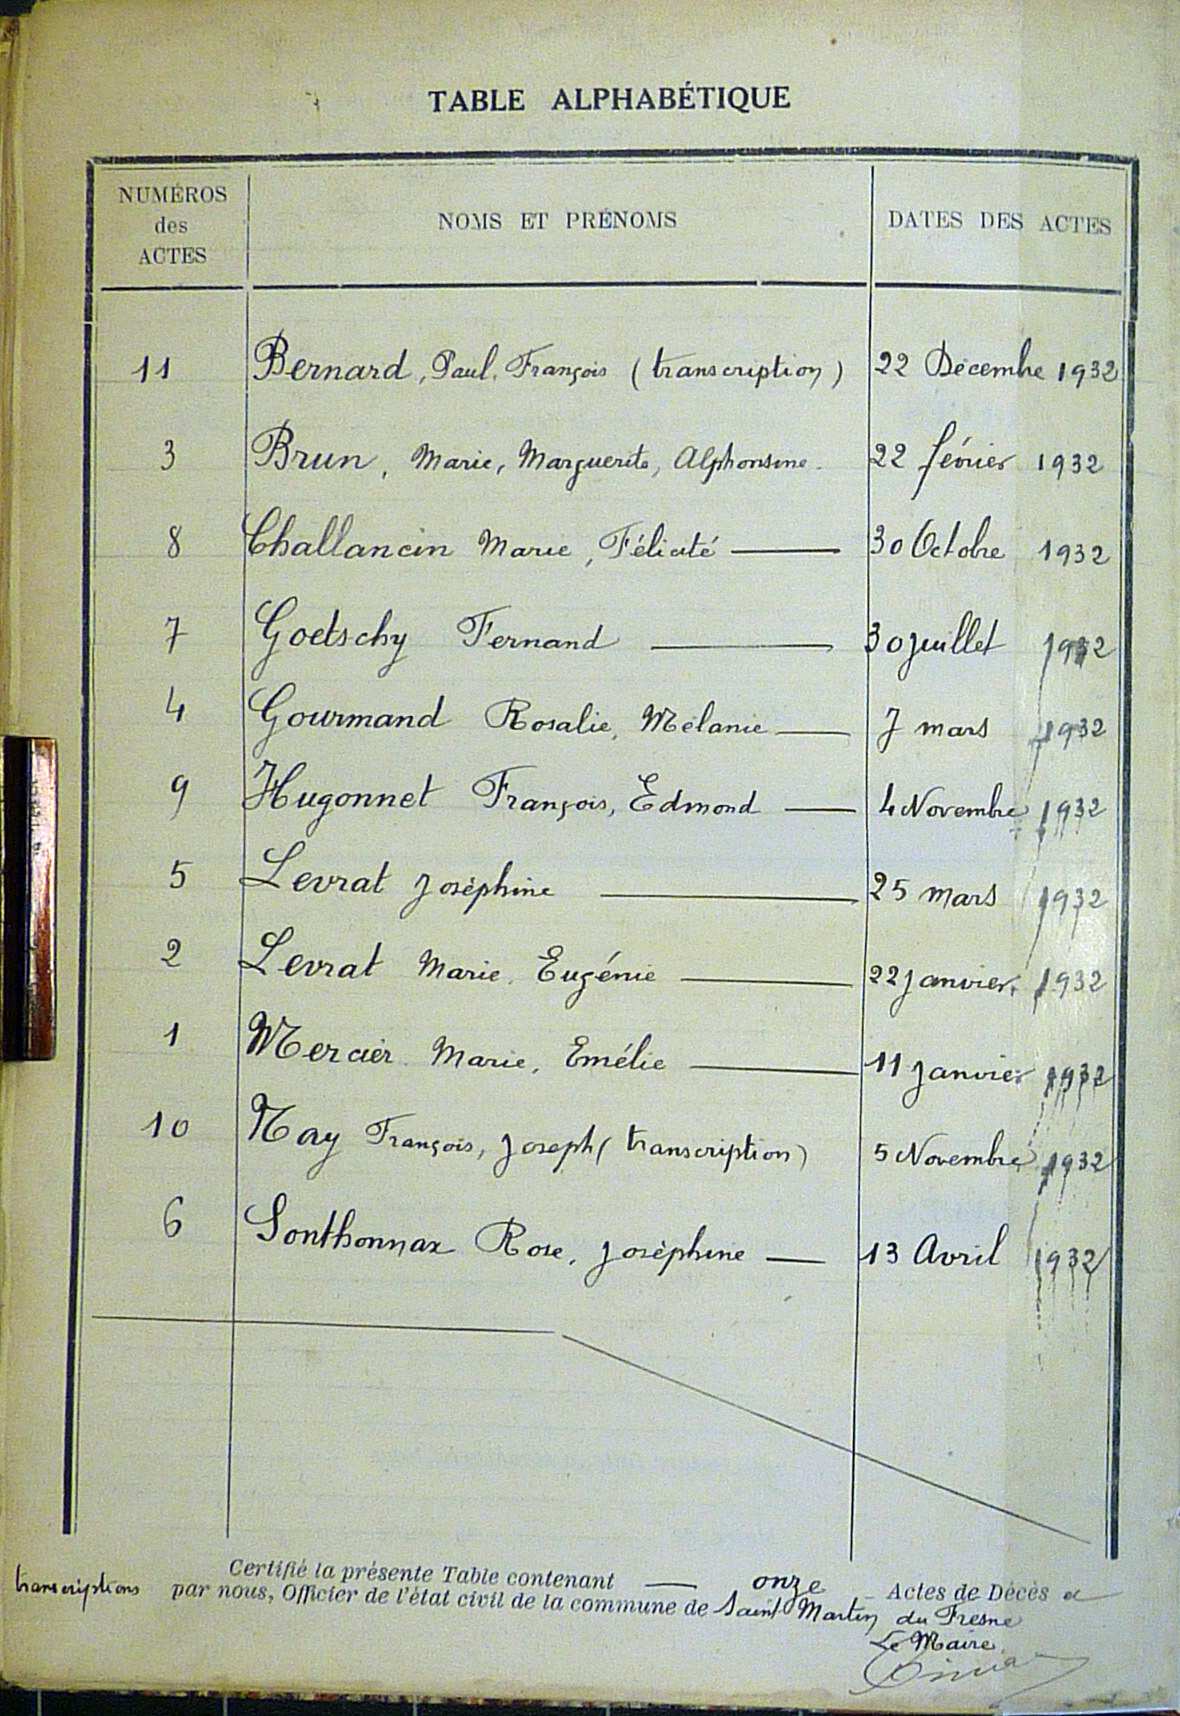 TABLE ALPHABÉTIQUE
NUMÉROS des ACTES NOMS ET PRÉNOMS DATES DES ACTES
11 Bernard, Paul, François (transcription) 22 Décembre 1932
3 Brun, Marie, Marguerite, Alphonsine. 22 février 1932
8 Challancin Marie, Félicité 30 Octobre 1932
7 Goetschy Fernand 30 juillet 1932
4 Gourmand Rosalie, Mélanie 7 mars 1932
9 Hugonnet François, Edmond 4 Novembre 1932
5 Levrat Joséphine 25 mars 1932
2 Levrat Marie. Eugénie 22 janvier 1932
1 Mercier Marie, Emélie 11 janvier 1932
10 Nay François, Joseph (transcription) 5 Novembre 1932
6 Sonthonnax Rose, Joséphine 13 Avril 1932
Certifié la présente Table contenant onze Actes de Décès et
transcriptions par nous, Officier de l'état civil de la commune de Saint Martin du Fresne
Le Maire